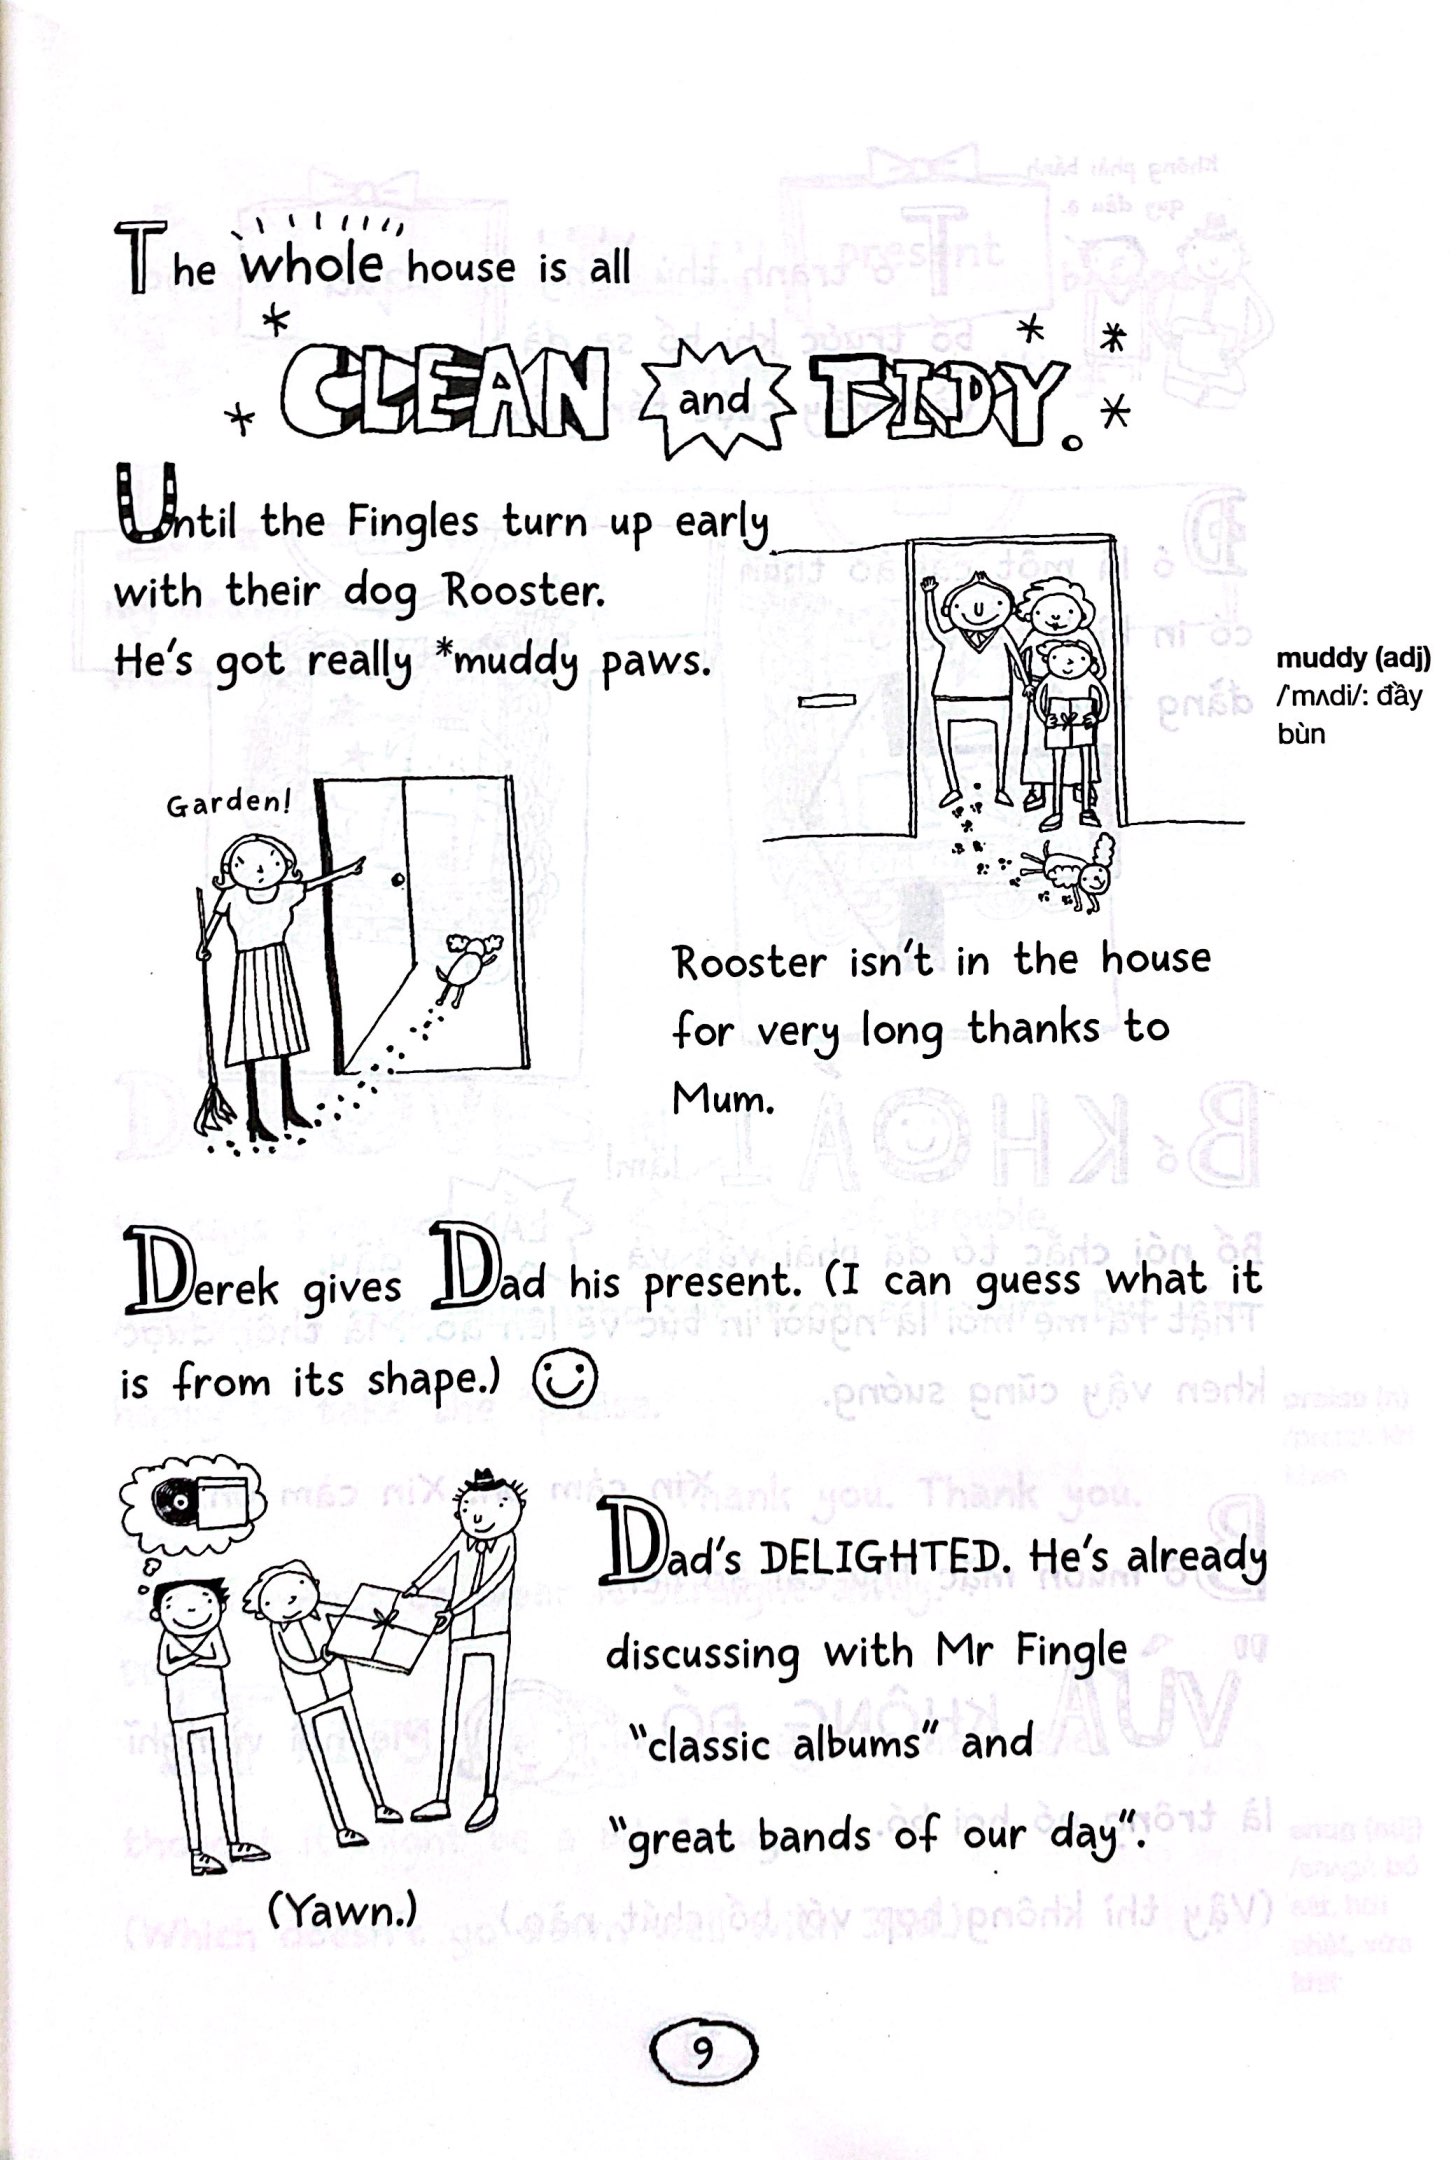 The whole house is all
CLEAN and TIDY.
Until the Fingles turn up early
with their dog Rooster.
He's got really *muddy paws.
muddy (adj)
/'mʌdi/: đầy
bùn
Garden!
Rooster isn't in the house
for very long thanks to
Mum.
Derek gives Dad his present. (I can guess what it
is from its shape.)
Dad's DELIGHTED. He's already
discussing with Mr Fingle
"classic albums" and
"great bands of our day".
(Yawn.)
9